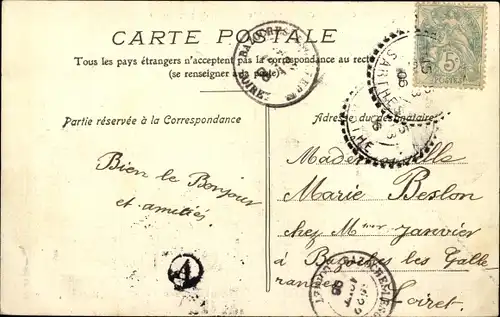 CARTE POSTALE
Tous les pays étrangers n'acceptent pas la correspondance au recto
(se renseigner à la poste)
Partie réservée à la Correspondance
Adresse du destinataire
Bien le Bonjour
et amitiés
Mademoiselle
Marie Beslon
chez Mme Janvier
à Bazoches les Galle
randes Loiret
A
SARTHE
LOIRET
5c
POSTES